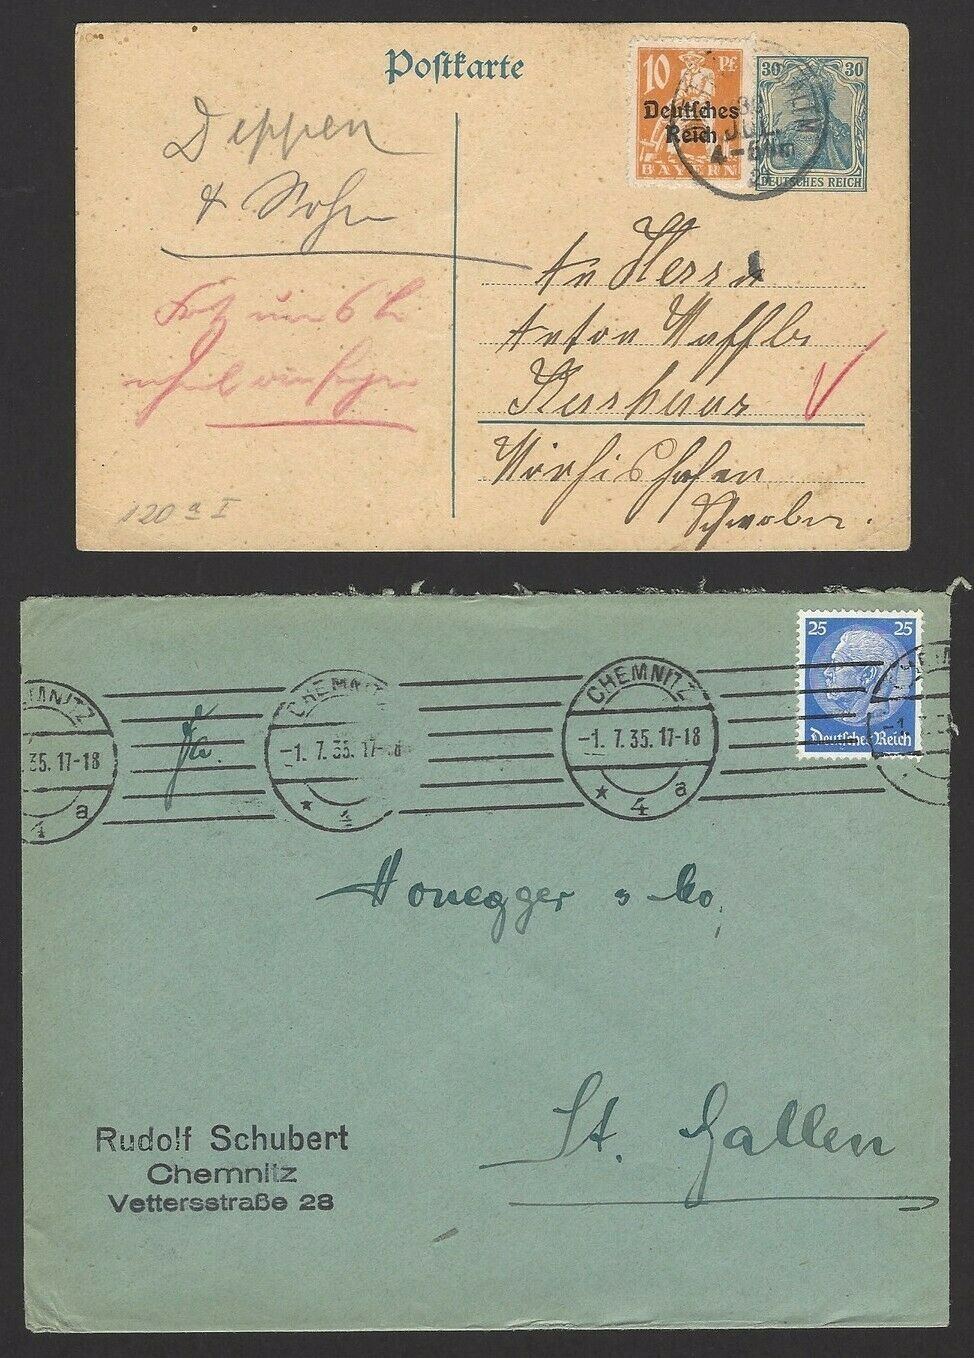 Postkarte
10 Pf
Deutsches
Reich
BAYERN
30 30
DEUTSCHES REICH
JUL.
Deppen
& Sohn
An Herrn
Anton
Kurhaus
Wörishofen
Schwaben.
120 a I
25 25
Deutsches Reich
CHEMNITZ
-1.7.35.17-18
4 a
CHEMNITZ
-1.7.35.17-18
4
CHEMNITZ
35.17-18
4 a
Fa.
Honegger & Co.
St. Gallen
Rudolf Schubert
Chemnitz
Vettersstraße 28